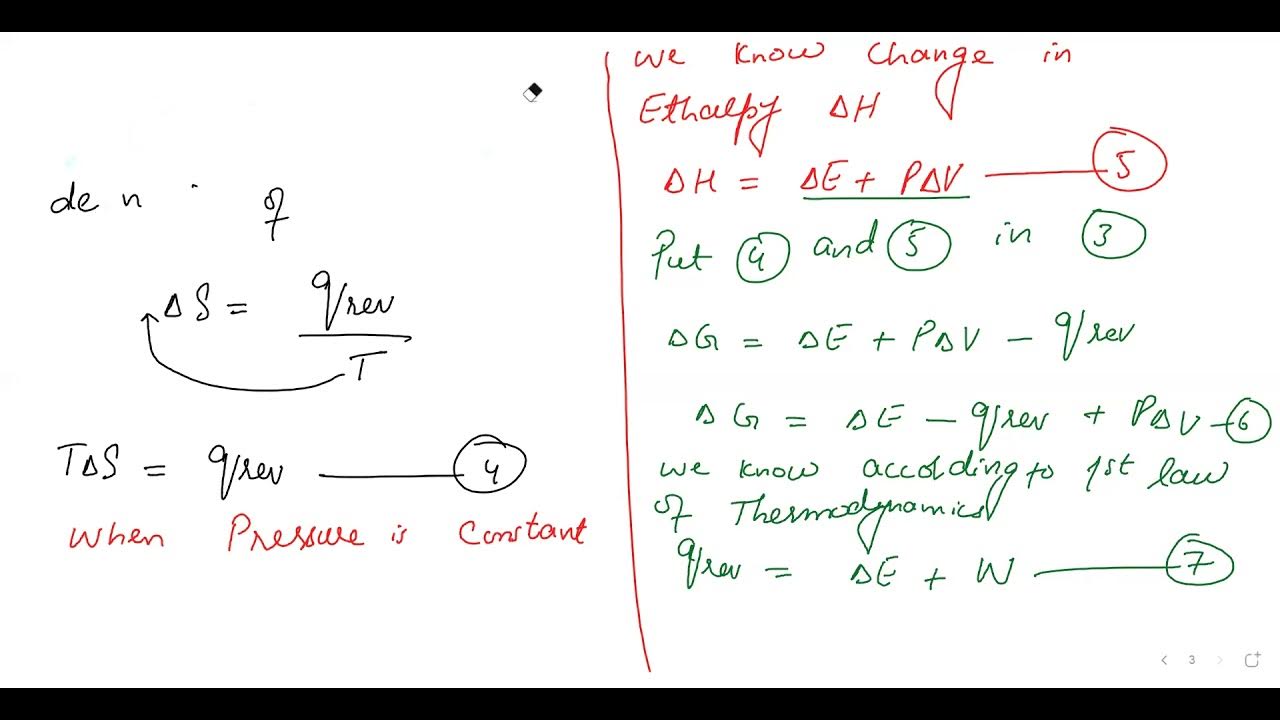 de n of
ΔS = qrev
T
TΔS = qrev 4
when Pressure is Constant
we know Change in
Ethalpy ΔH
ΔH = ΔE + PΔV 5
Put 4 and 5 in 3
ΔG = ΔE + PΔV - qrev
ΔG = ΔE - qrev + PΔV - 6
we know according to 1st law
of Thermodynamics
qrev = ΔE + W 7
< 3 >